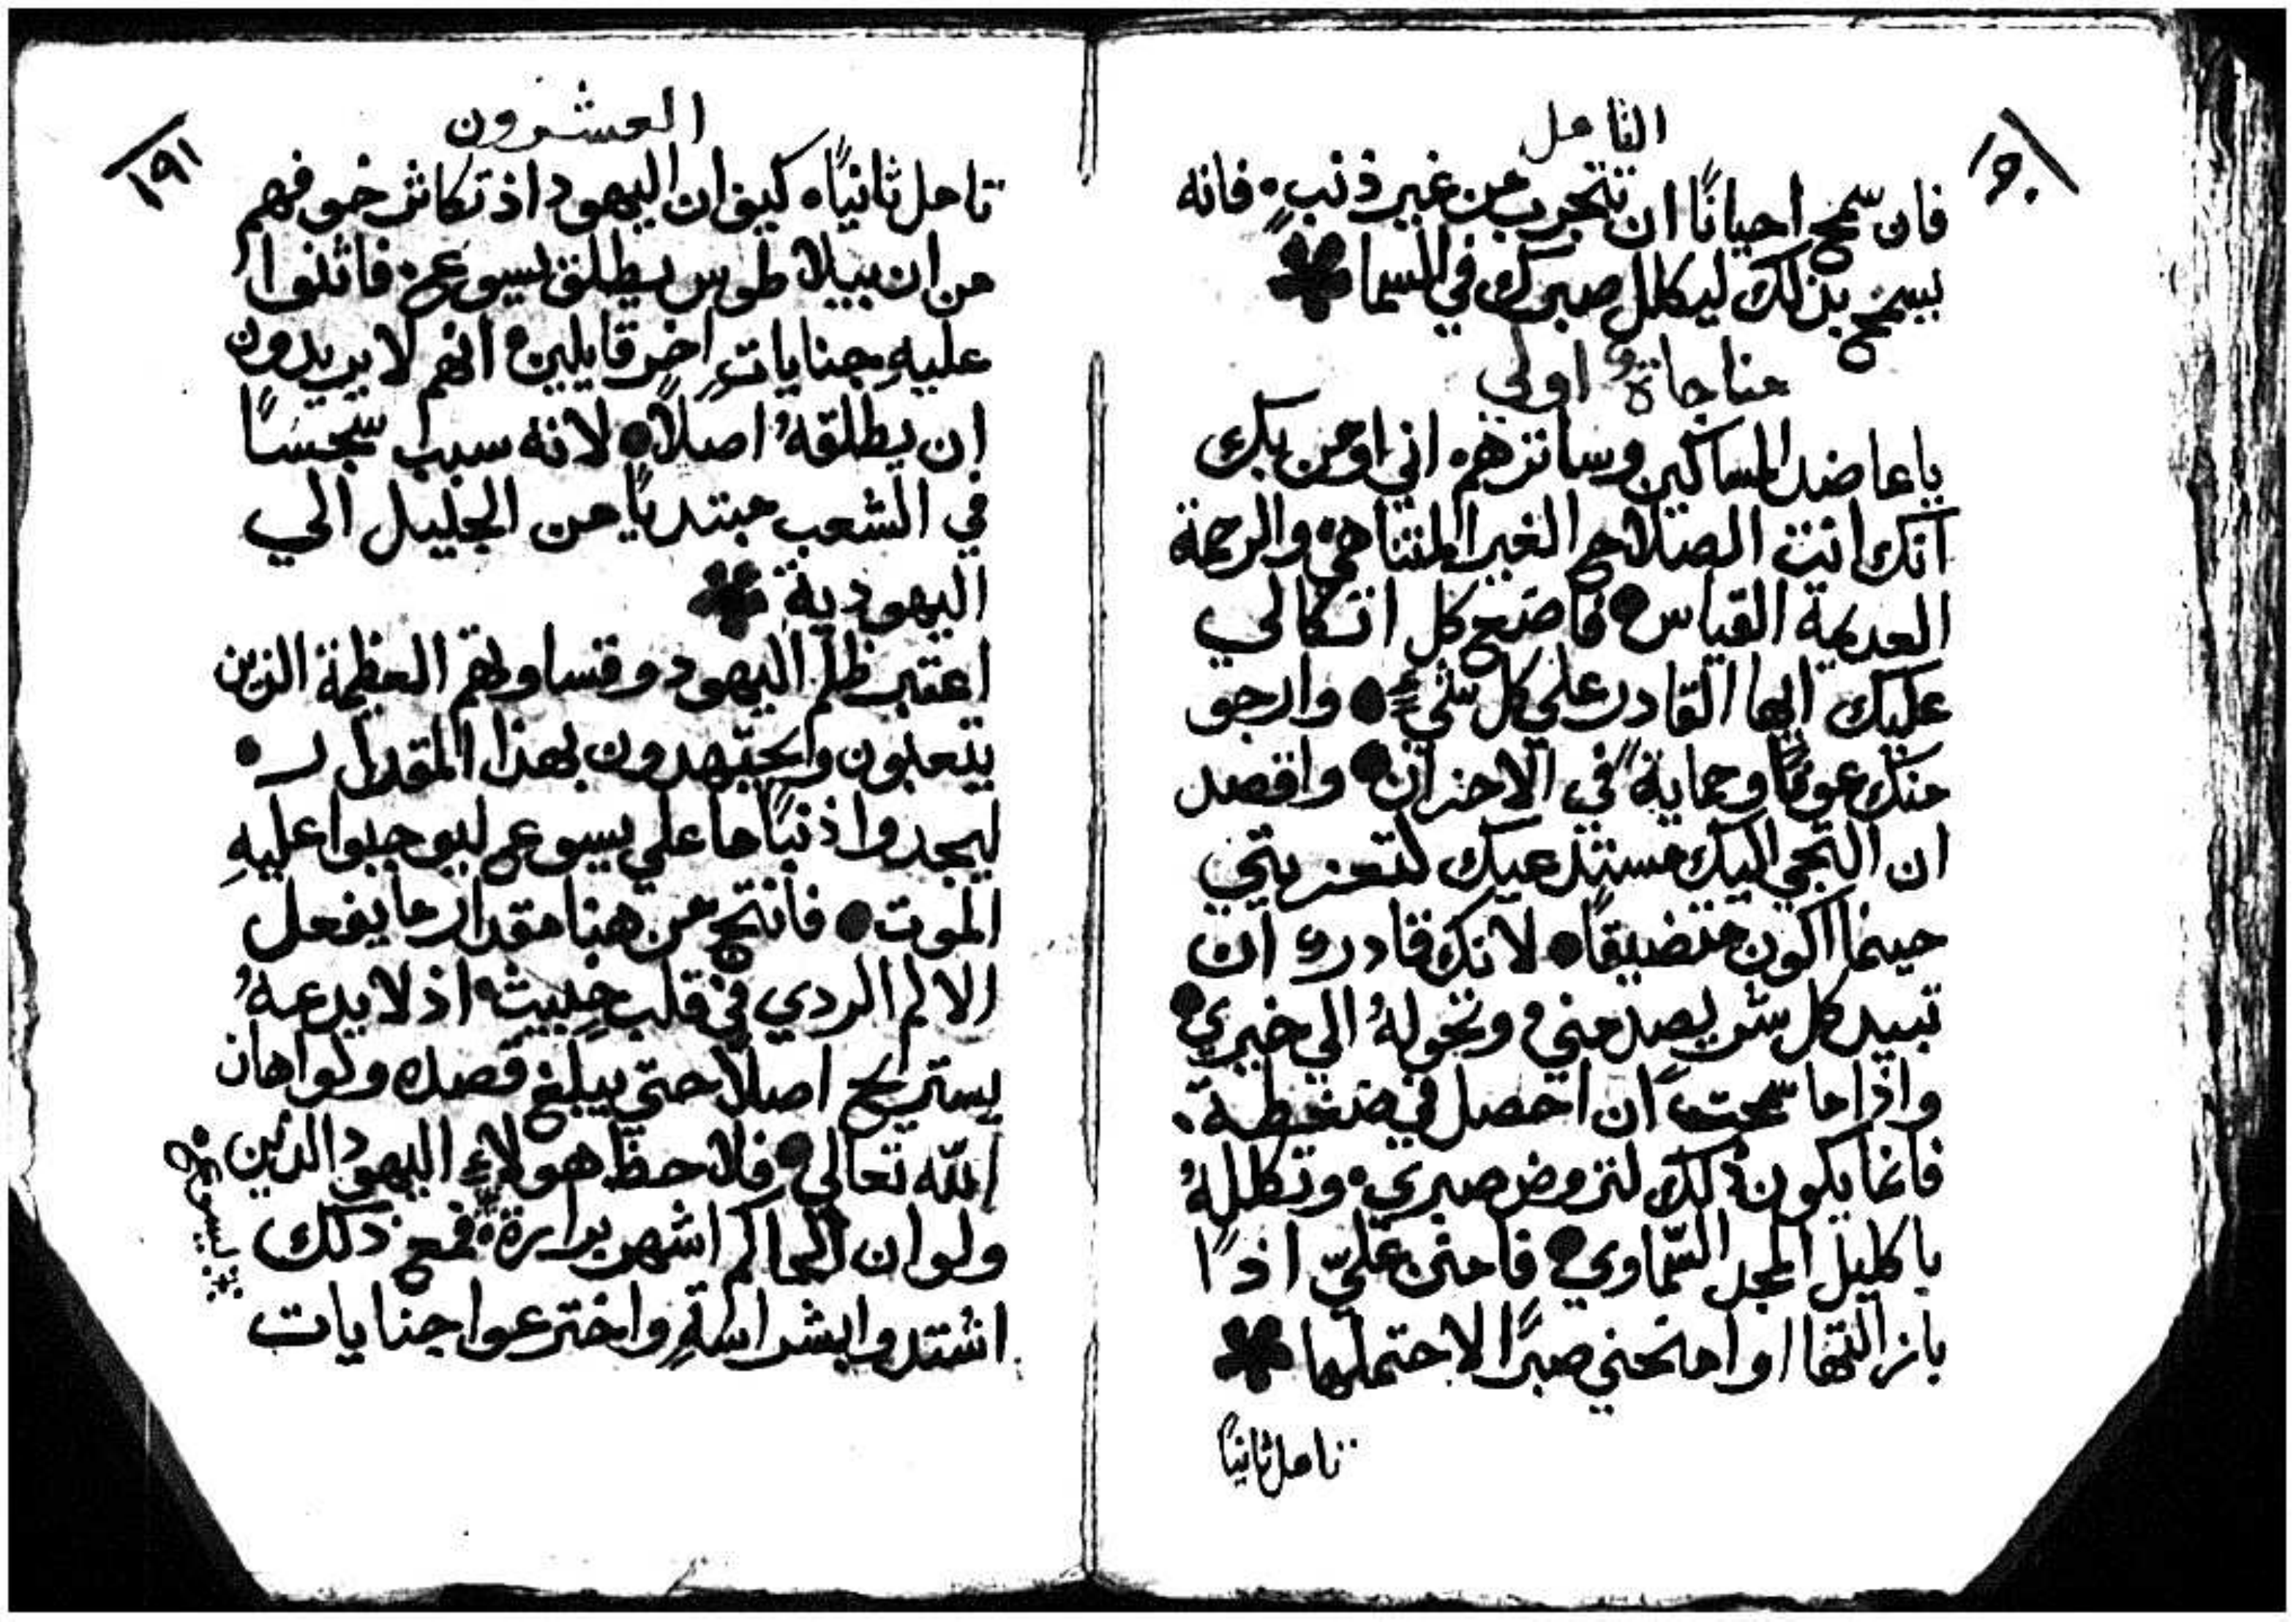 التامل
١٩٠
فان سمح احيانًا ان تتجرب من غير ذنبٍ • فانه
يسمح بذلك ليكلل صبرك في السما
مناجاةٌ اولي
يا عاضد المساكين وساترهم • اني اومن بك
انك انت الصلاح الغير المتناهي • والرحمة
العديمة القياس • فاضع كل اتكالي
عليك ايها القادر علي كل شيءٍ • وارجو
منك عونًا وحمايةً في الاحزان • واقصد
ان التجي اليك مستدعيك لتعزيتي
حينما اكون متضيقًا • لانك قادر ان
تبيد كل شرٍ يصدمني • وتحولهُ الي خيري •
واذا ما سمحت ان احصل في ضغطة •
فانما يكون ذلك لتروض صبري • وتكللهُ
باكليل المجد السّماوي • فامنن عليّ اذًا
بازالتها او امنحني صبرًا لاحتمالها
تامل ثانيًا
العشرون
١٩١
تامل ثانيًا • كيف ان اليهود اذ تكاثر خوفهم
من ان بيلاطوس يطلق يسوع • فاثلفوا
عليهِ جناياتٍ اخر قايلين • انهم لا يريدون
ان يطلقهُ اصلًا • لانه سبب سجسًا
في الشعب مبتديًا من الجليل الي
اليهودية
اعتبر ظلم اليهود وقساوتهم العظيمة الذين
يتعبون ويجتهدون بهذا المقدار •
ليجدوا ذنبًا ما علي يسوع ليوجبوا عليهِ
الموت • فانتج من هنا مقدار ما يفعل
الالم الردي في قلب خبيث • اذ لا يدعهُ
يستريح اصلًا حتي يبلغ قصده ولو اهان
الله تعالي • فلاحظ هولاءِ اليهود الذين
ولو ان الحاكم اشهر برارة • فمع ذلك
يسوع
اشتدوا بشراسةٍ واخترعوا جنايات